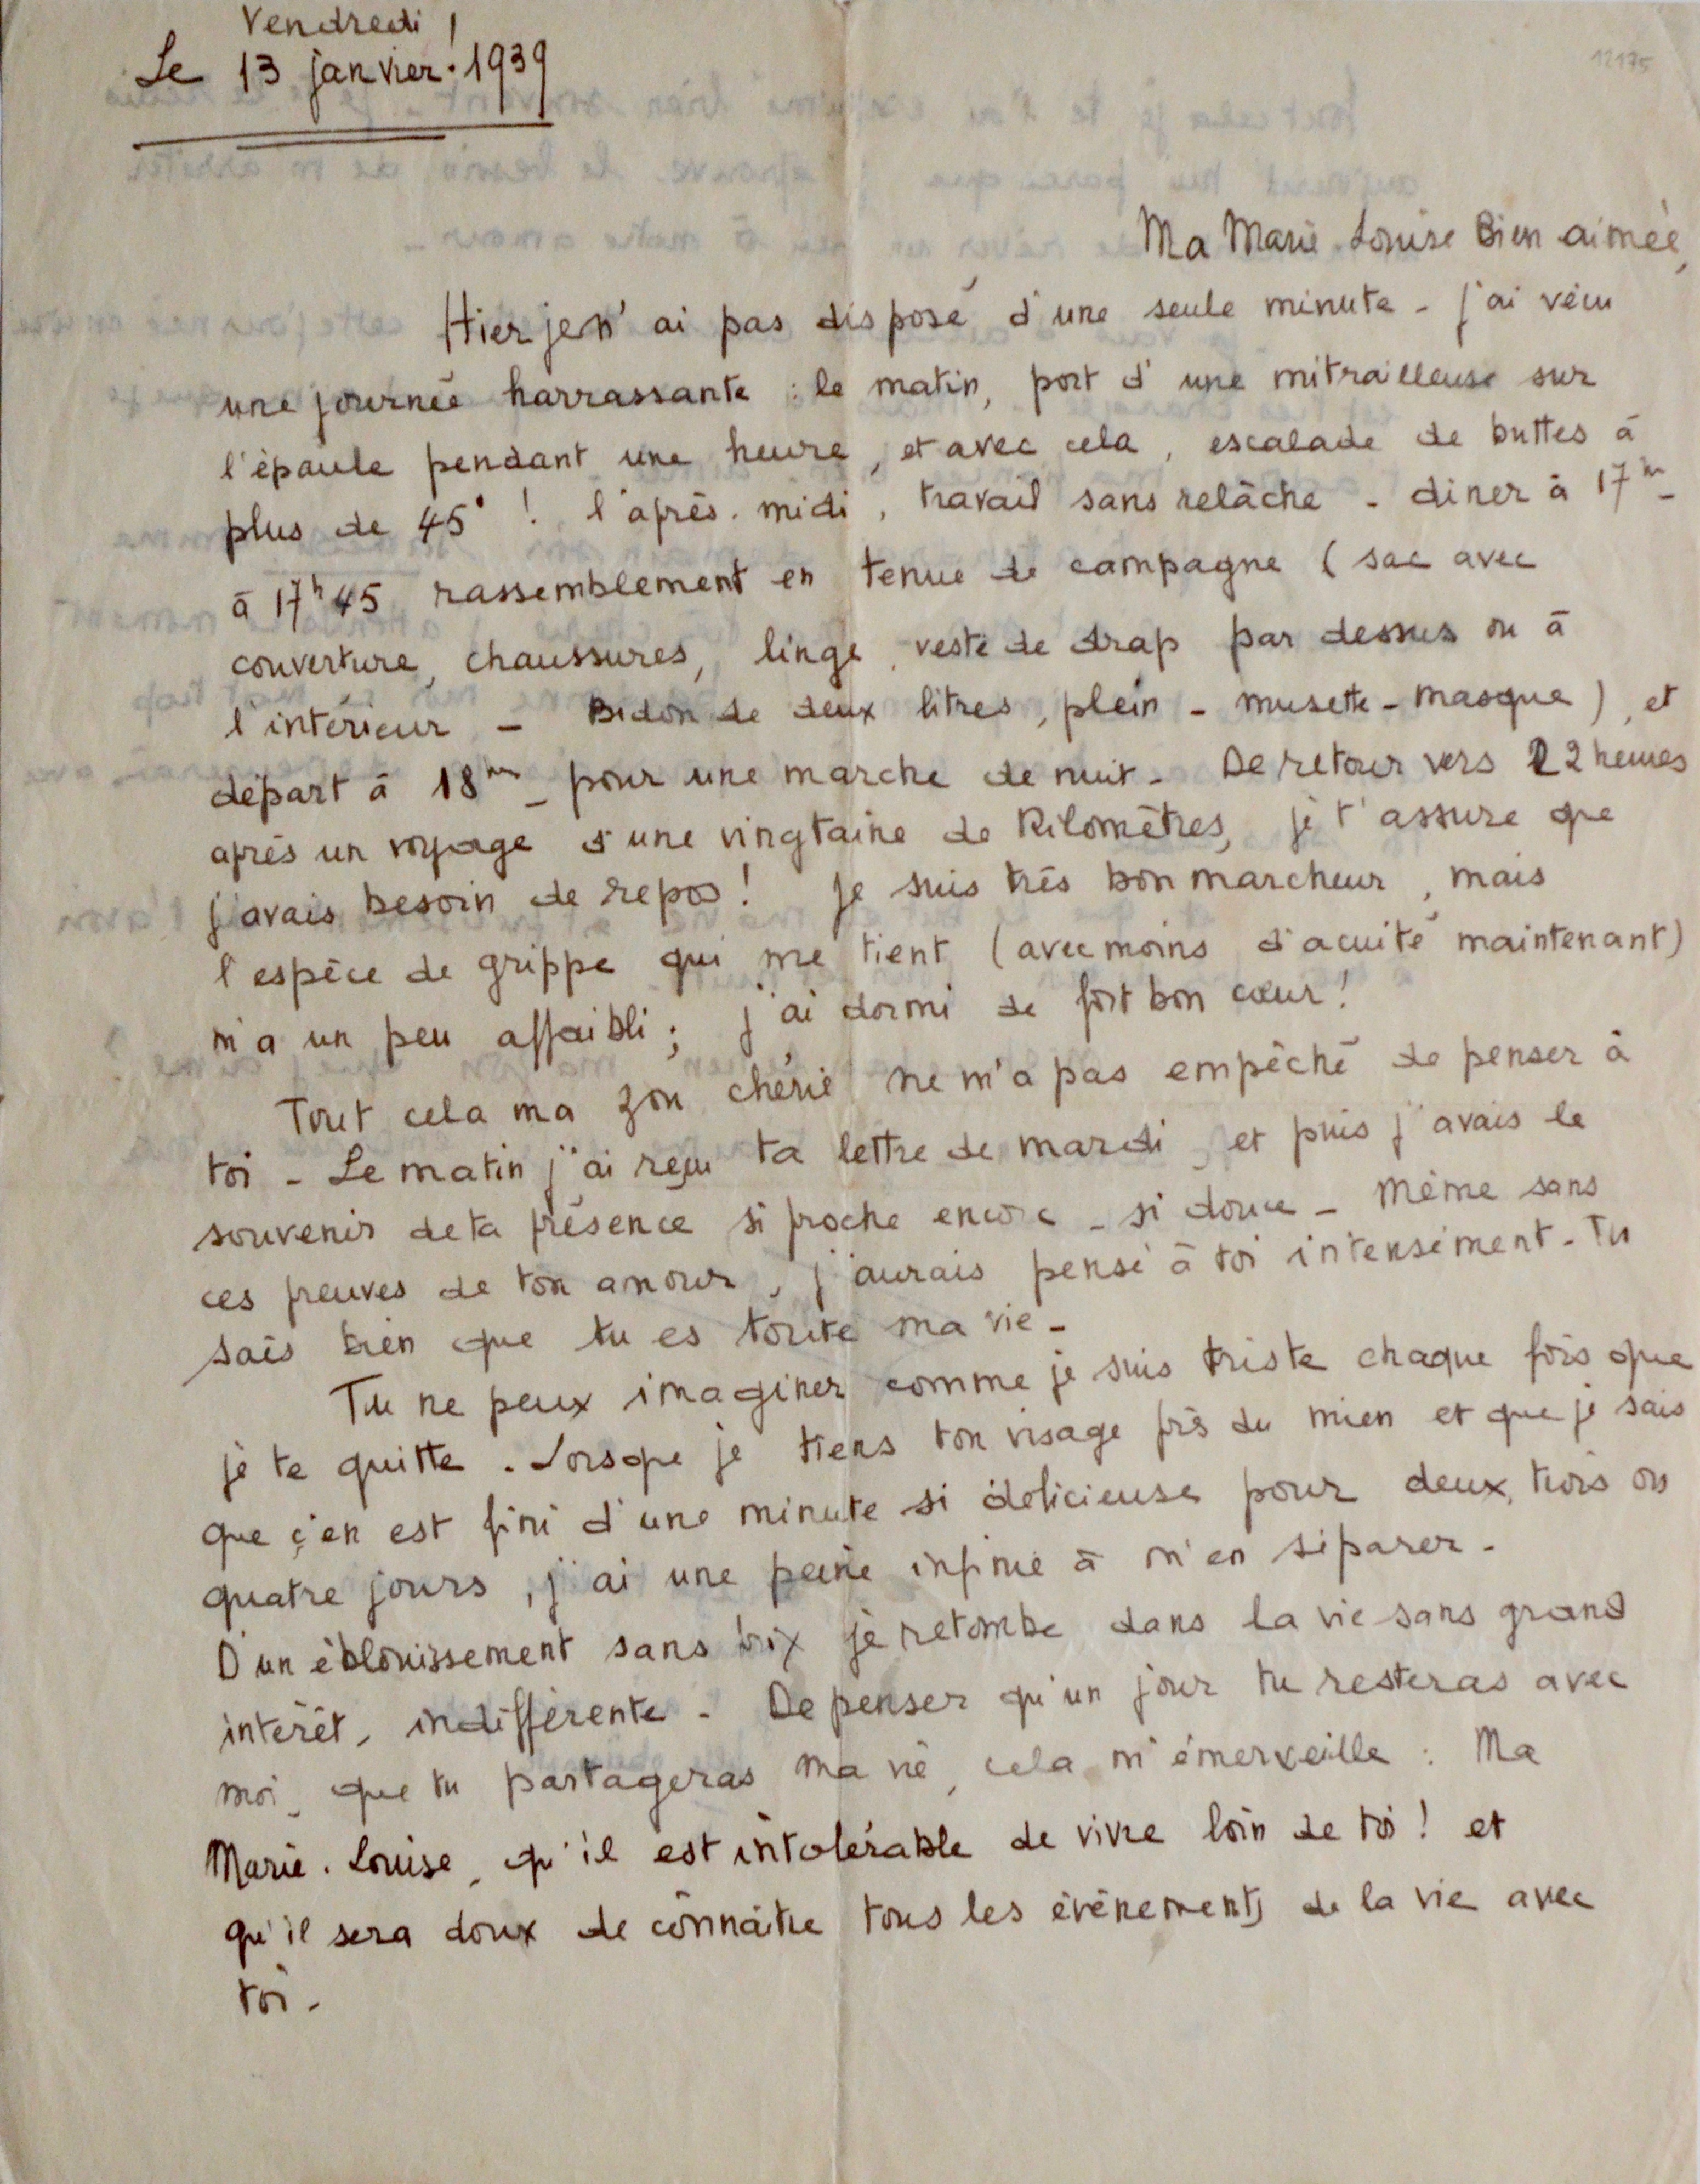 Vendredi !
Le 13 janvier. 1939
12175
Ma Marie Louise Bien aimée,
Hier je n'ai pas disposé d'une seule minute - j'ai vécu
une journée harrassante : le matin, port d'une mitrailleuse sur
l'épaule pendant une heure, et avec cela, escalade de buttes à
plus de 45° ! l'après-midi, travail sans relâche - diner à 17h -
à 17h45 rassemblement en tenue de campagne (sac avec
couverture, chaussures, linge, veste de drap par dessus ou à
l'intérieur - Bidon de deux litres, plein - musette - masque), et
départ à 18h - pour une marche de nuit - De retour vers 22 heures
après un voyage d'une vingtaine de Kilomètres, je t'assure que
j'avais besoin de repos ! Je suis très bon marcheur, mais
l'espèce de grippe qui me tient (avec moins d'acuité maintenant)
m'a un peu affaibli ; j'ai dormi de fort bon cœur !
Tout cela ma Zou chérie ne m'a pas empêché de penser à
toi - Le matin j'ai reçu ta lettre de mardi, et puis j'avais le
souvenir de ta présence si proche encore - si douce - Même sans
ces preuves de ton amour, j'aurais pensé à toi intensément - Tu
sais bien que tu es toute ma vie -
Tu ne peux imaginer comme je suis triste chaque fois que
je te quitte. Lorsque je tiens ton visage près du mien et que je sais
que ç'en est fini d'une minute si délicieuse pour deux, trois ou
quatre jours, j'ai une peine infinie à m'en séparer -
D'un éblouissement sans prix je retombe dans la vie sans grand
intérêt, indifférente - De penser qu'un jour tu resteras avec
moi, que tu partageras ma vie, cela m'émerveille : Ma
Marie-Louise, qu'il est intolérable de vivre loin de toi ! et
qu'il sera doux de connaître tous les évènements de la vie avec
toi -